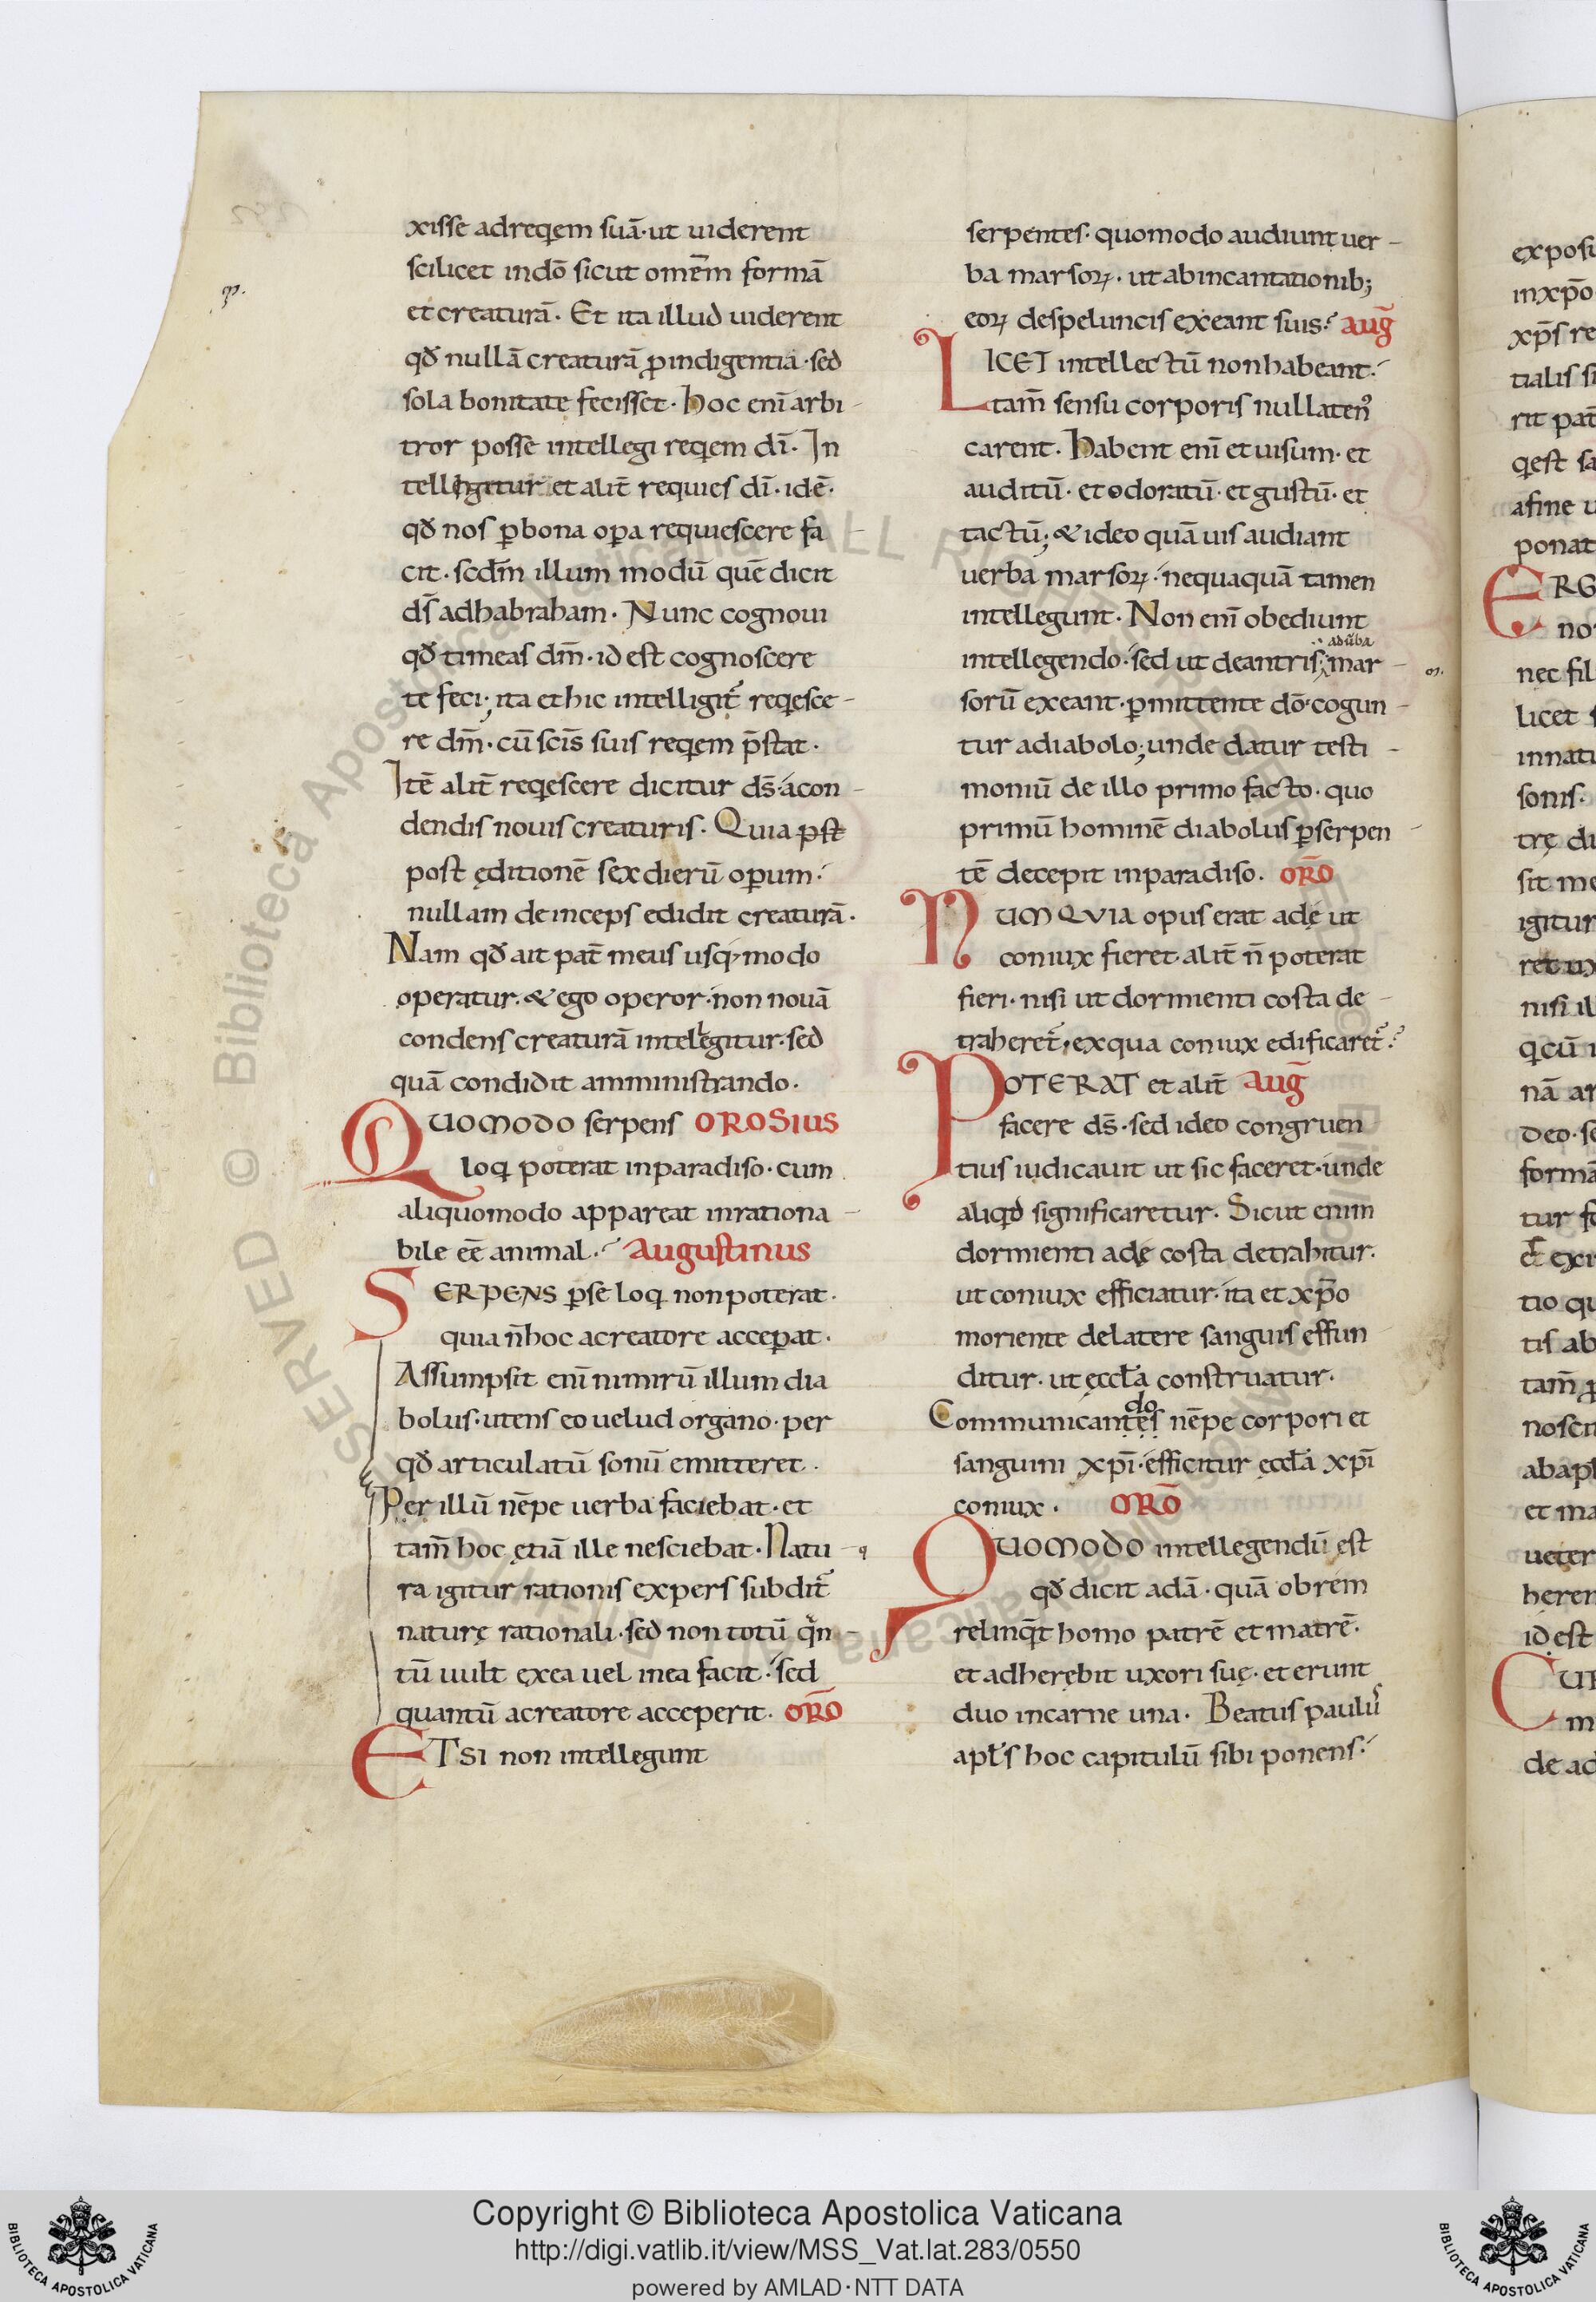 xisse adreqem suā·ut uiderent
scilicet indō sicut omēm formā
et creaturā· Et ita illud uiderent
qđ nullā creaturā ꝑ indigentiā·sed
sola bonitate fecisset· hoc enī arbi-
tror posse intellegi reqem dī· In
telligetur et alit̄ requies dī·id ē·
qđ nos ꝑbona oꝑa requiescere fa-
cit·scdm̄ illum modū quē dicit
ds̄ adhabraham· Nunc cognoui
qđ timeas dm̄·id est cognoscere
te feci; ita et hic intelligit̄ reqesce-
re dm̄·cū scīs suis reqem p̄stat·
Itē alit̄ reqescere dicitur ds̄·acon-
dendis nouis creaturis· Quia pst
post ęditionē sex dierū oꝑum·
nullam deinceps edidit creaturā·
Nam qđ ait pat̄ meus usq; modo
operatur·& ego operor·non nouā
condens creaturā intellegitur·sed
quā condidit amministrando·
QUOMODO serpens OROSIUS
loq poterat inparadiso·cum
aliquomodo appareat inrationa-
bile eē animal· Augustinus
SERPENS ꝑse loq non poterat·
quia n̄ hoc acreatore acceꝑat·
Assumpsit enī nimirū illum dia
bolus·utens eo uelud organo·per
qđ articulatū sonū emitteret·
Per illū nēpe uerba faciebat·et
tam̄ hoc ętiā ille nesciebat· Natu-
ra igitur rationis expers subdit̄
naturę rationali·sed non totū qn-
tū uult exea uel inea facit·sed
quantū acreatore acceperit· ORŌ
ETSI non intellegunt
serpentes·quomodo audiunt uer-
ba marsoꝝ·ut abincantationib;
eoꝝ despeluncis exeant suis· Auḡ
LICET intellectū non habeant·
tam̄ sensu corporis nullaten᾽
carent· habent enī et uisum·et
auditū·et odoratū·et gustū·et
tactū; & ideo quā uis audiant
uerba marsoꝝ·nequaquā tamen
intellegunt· Non enī obediunt
aduba
intellegendo·sed ut deantris mar-
sorū exeant·ꝑmittente dō·cogun-
tur adiabolo; unde datur testi-
moniū de illo primo facto·quo
primū hominē diabolus ꝑserpen-
tē decepit inparadiso· ORŌ
NUMQVIA opus erat adę ut
coniux fieret·alit̄ n̄ poterat
fieri·nisi ut dormienti costa de-
traheret̄·exqua coniux edificaret̄·
POTERAT et alit̄ Auḡ
facere ds̄·sed ideo congruen
tius iudicauit ut sic faceret·unde
aliqd significaretur· Sicut enim
dormienti adę costa detrahitur·
ut coniux efficiatur·ita et xp̄o
moriente delatere sanguis effun
ditur·ut ęccła construatur·
do
Communicantes nēpe corpori et
sanguini xp̄i·efficitur ęccła xp̄i
coniux· ORŌ
QUOMODO intellegendū est
qđ dicit adā·quā obrem
relinqt homo patrē et matrē·
et adherebit uxori suę·et erunt
duo incarne una· Beatus paulus
apłs hoc capitulū sibi ponens·
inxp̄o
xp̄s re
nec fil
licet
innati
sonis·
sit me
igitur
nisi il
deo·se
formā
tio qu
tis ab
et ma
ueter
id est
de ad
Copyright © Biblioteca Apostolica Vaticana
http://digi.vatlib.it/view/MSS_Vat.lat.283/0550
powered by AMLAD·NTT DATA
BIBLIOTECA APOSTOLICA VATICANA
BIBLIOTECA APOSTOLICA VATICANA